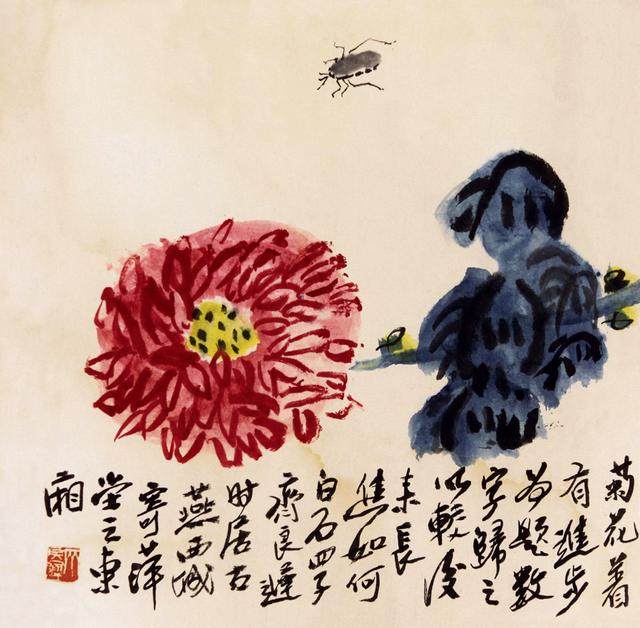 菊花着
有進步
為題數
字歸之
以較後
来長
進如何
白石四子
齊良遲
時居古
燕西城
寄萍
堂之東
廂